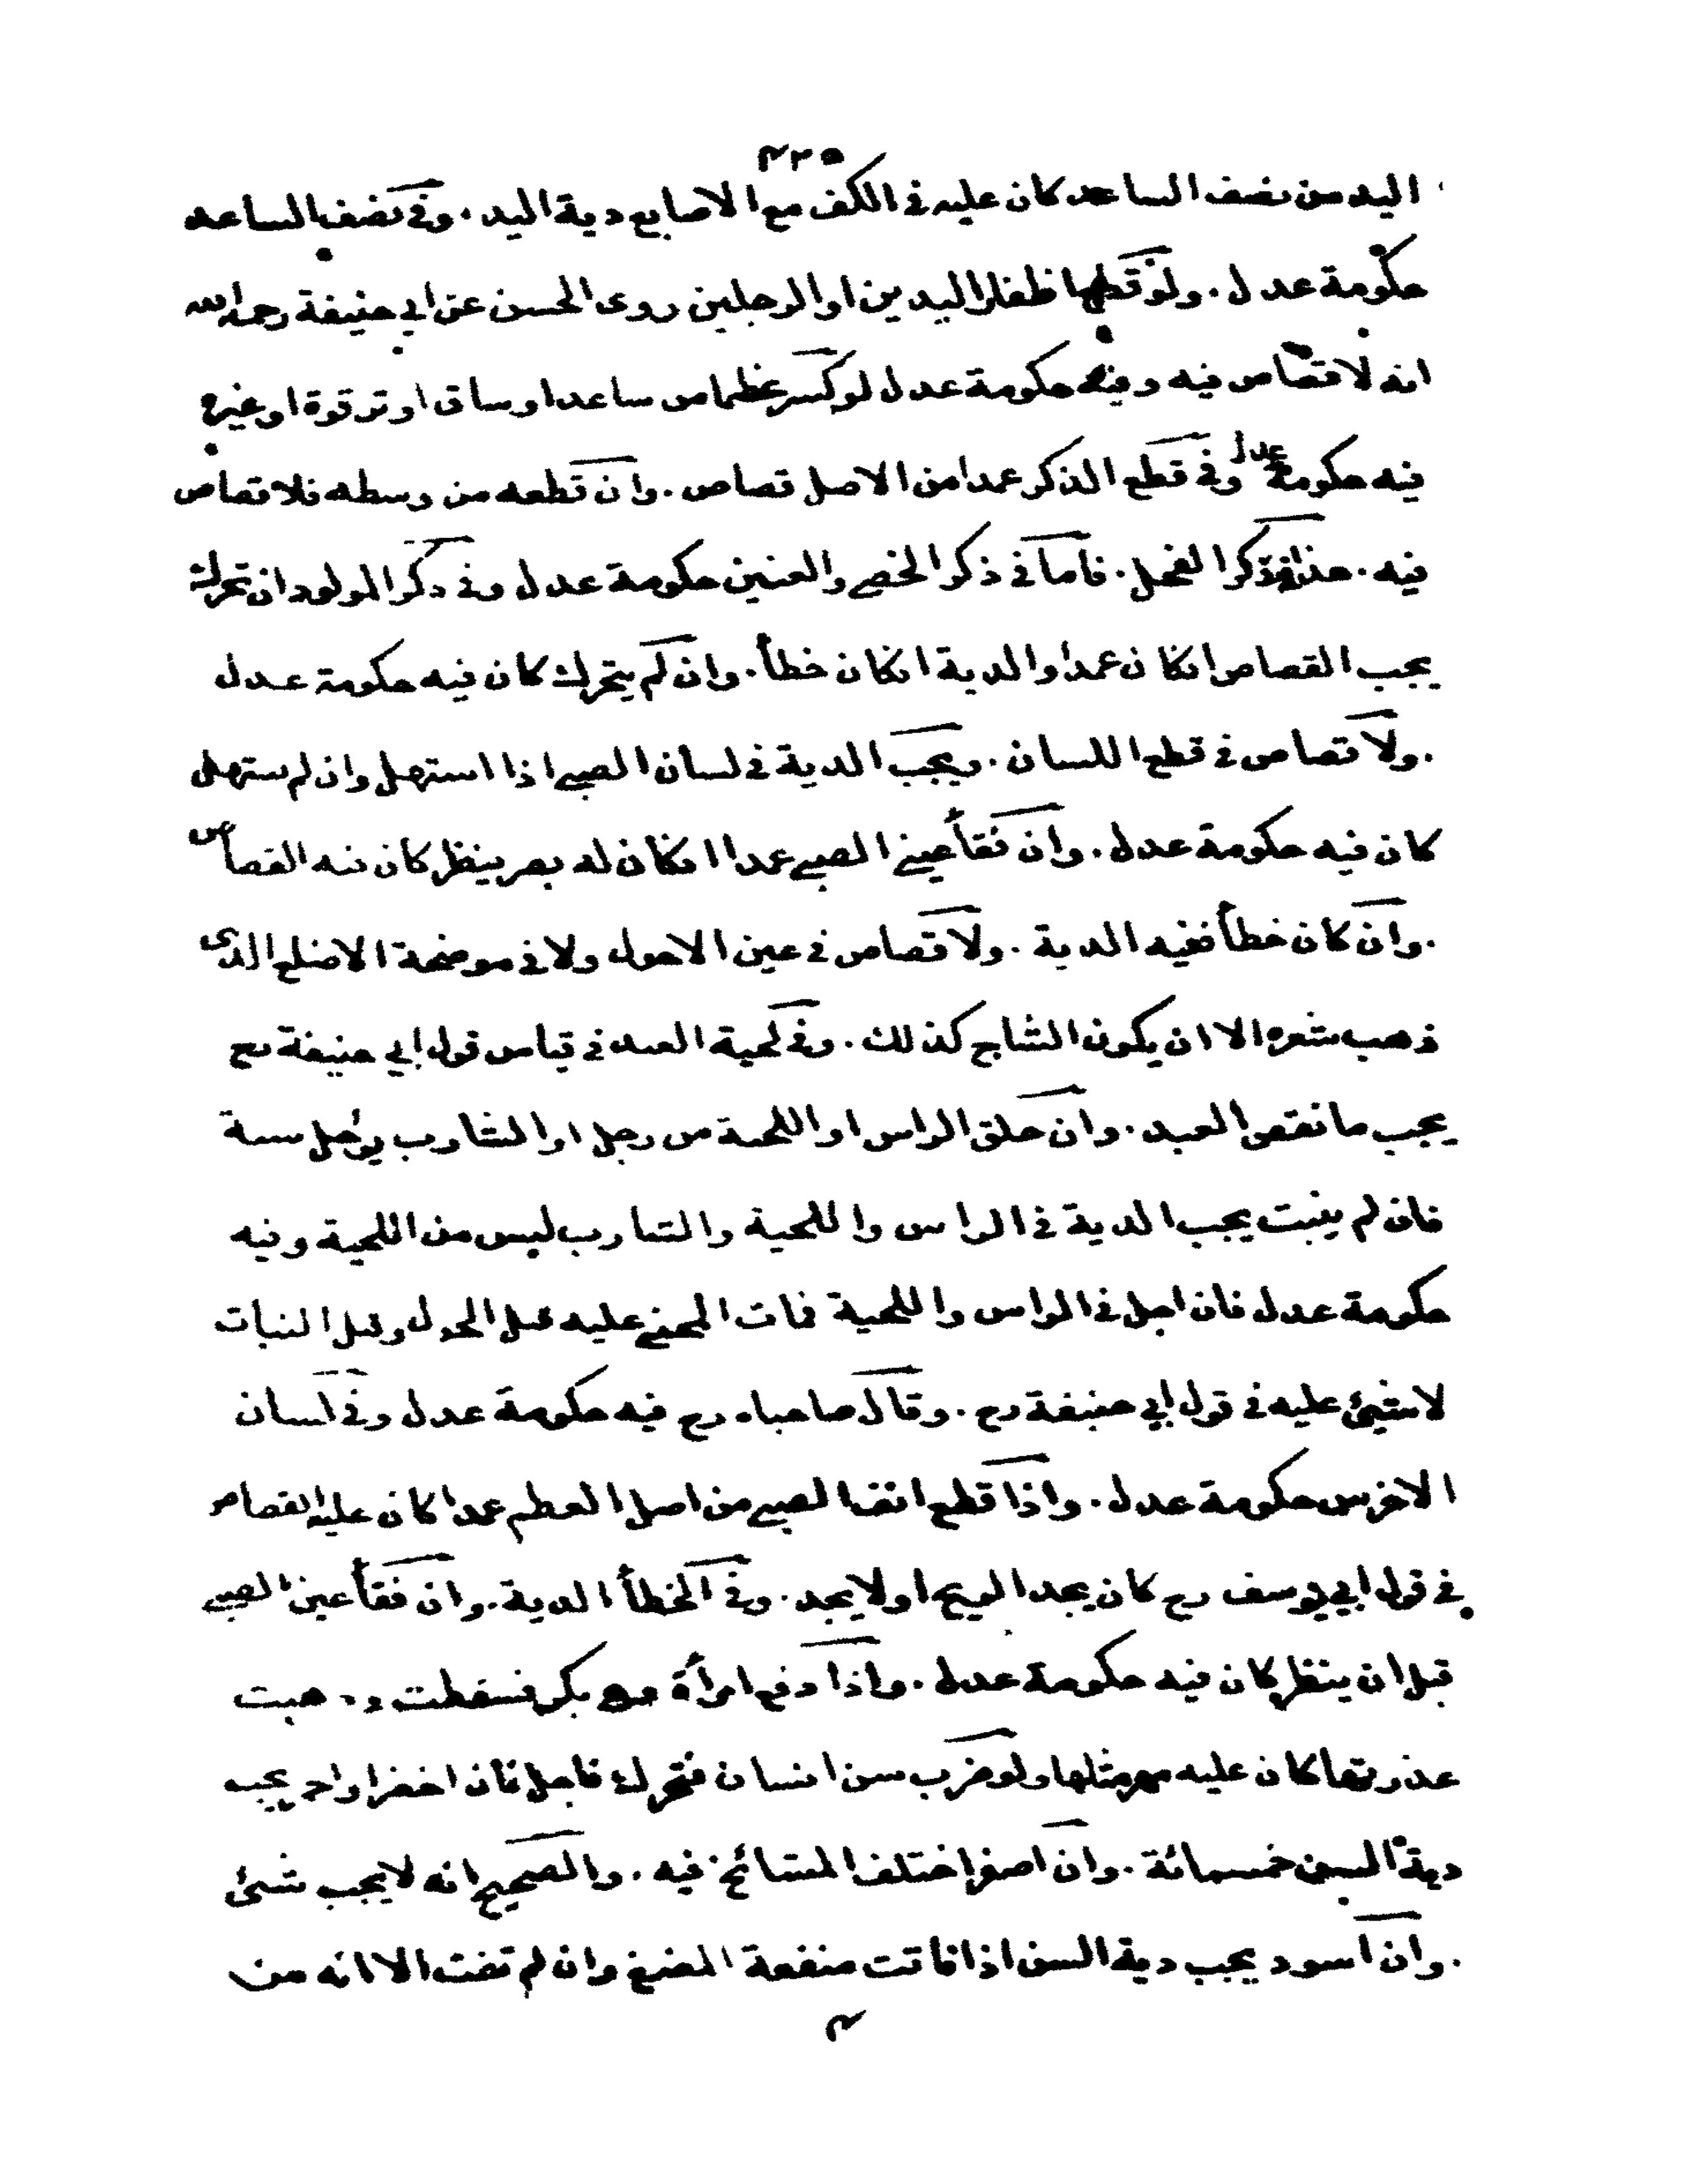 ٤٢٥
اليد من نصف الساعد كان عليه في الكف مع الاصابع دية اليد . وفي نصف الساعد
حكومة عدل . ولو قطع اظفار اليدين او الرجلين روى الحسن عن ابي حنيفة رحمه الله
انه لا قصاص فيه وفيه حكومة عدل لو كسر عظما من ساعد او ساق او ترقوة او غيره
فيه حكومة عدل وفي قطع الذكر عمدا من الاصل قصاص . وان قطعه من وسطه فلا قصاص
فيه . هذا في ذكر الفحل . فاما في ذكر الخصي والعنين حكومة عدل وفي ذكر المولود ان تحرك
يجب القصاص انكان عمدا والدية انكان خطأ . وان لم يتحرك كان فيه حكومة عدل
. ولا قصاص في قطع اللسان . ويجب الدية في لسان الصبي اذا استهل وان لم يستهل
كان فيه حكومة عدل . وان فقأ عيني الصبي عمدا انكان له بصر ينظر كان فيه القصاص
. وان كان خطأ ففيه الدية . ولا قصاص في عين الاحول ولا في موضحة الاصلع الذى
ذهب شعره الا ان يكون الشاج كذلك . وفي لحية العبد في قياس قول ابي حنيفة رح
يجب ما نقص العبد . وان حلق الراس او اللحية من رجل او الشارب يؤجل سنة
فان لم ينبت يجب الدية في الراس واللحية والشارب ليس من اللحية وفيه
حكومة عدل فان اجل في الراس واللحية فمات المجني عليه قبل الحول وقبل النبات
لا شيئ عليه في قول ابي حنيفة رح . وقال صاحباه رح فيه حكومة عدل وفي لسان
الاخرس حكومة عدل . واذا قطع انف الصبي من اصل العظم عمدا كان عليه القصاص
في قول ابي يوسف رح كان يجد الريح او لا يجد . وفي الخطأ الدية . وان فقأ عين الصبي
قبل ان ينظر كان فيه حكومة عدل . واذا دفع امرأة بكر فسقطت وذهبت
عذرتها كان عليه مهر مثلها ولو ضرب سن انسان فتحرك فاجل فان اخضر او احمر يجب
دية السن خمسمائة . وان اصفر اختلف المشائخ فيه . والصحيح انه لا يجب شيئ
. وان اسود يجب دية السن اذا فاتت منفعة المضغ وان لم تفت الا انه من